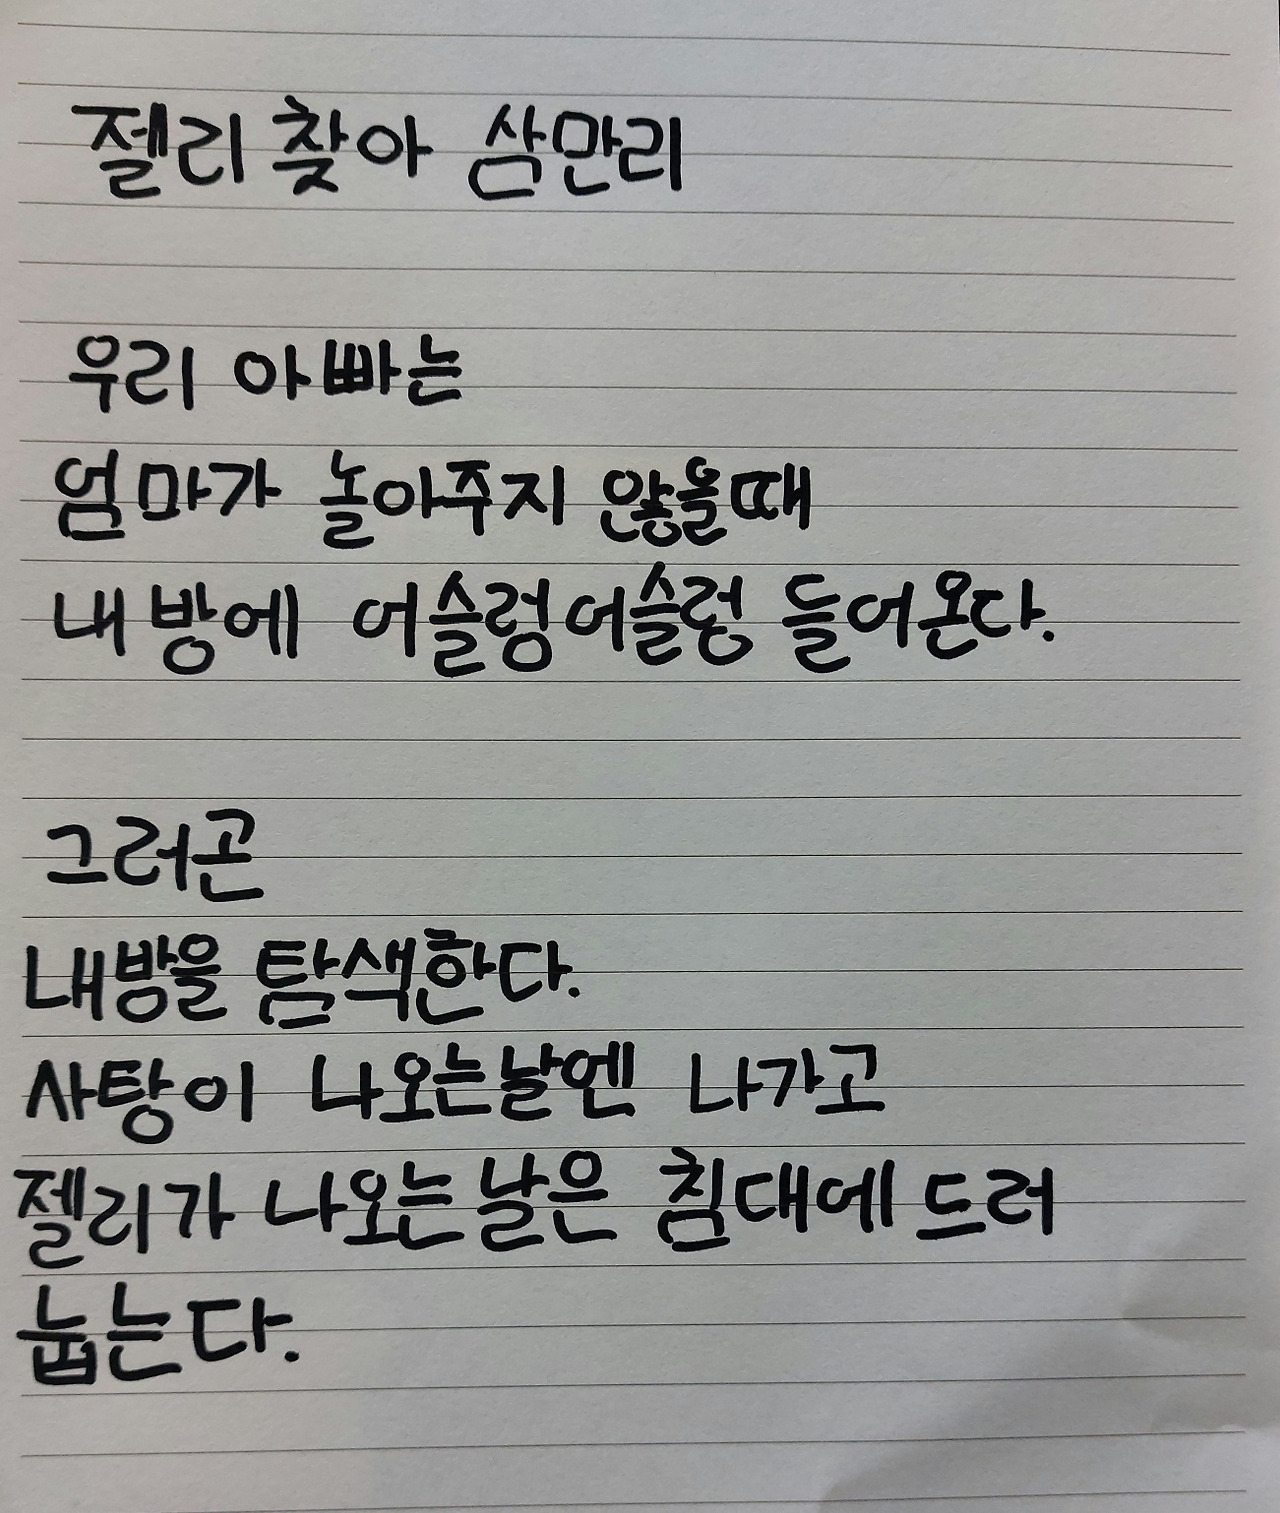 젤리 찾아 삼만리
우리 아빠는
엄마가 놀아주지 않을때
내 방에 어슬렁어슬렁 들어온다.
그러곤
내방을 탐색한다.
사탕이 나오는날엔 나가고
젤리가 나오는 날은 침대에 드러
눕는다.